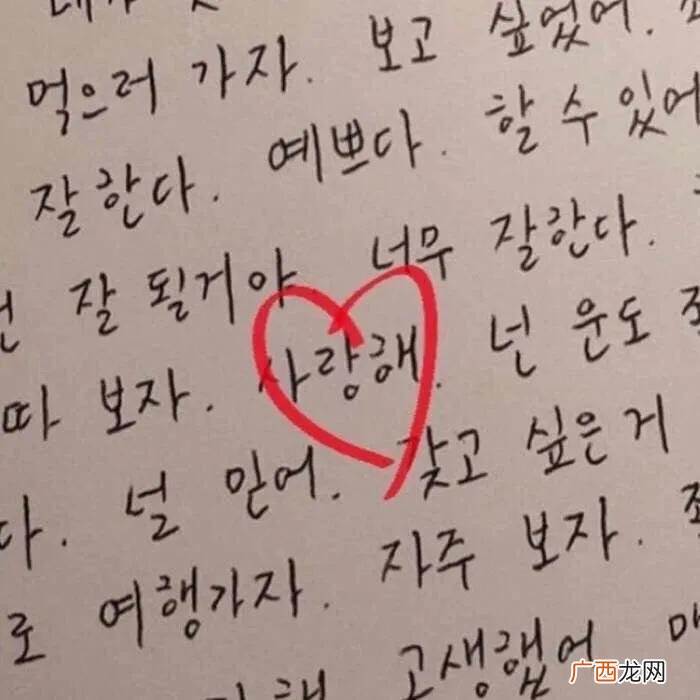 먹으러 가자. 보고 싶었어.
잘한다. 예쁘다. 할 수 있어
잘 될거야 너무 잘한다.
따 보자. 사랑해. 넌 운도
다. 널 믿어. 갖고 싶은 거
로 여행가자. 자주 보자.
고생했어
广西龙网